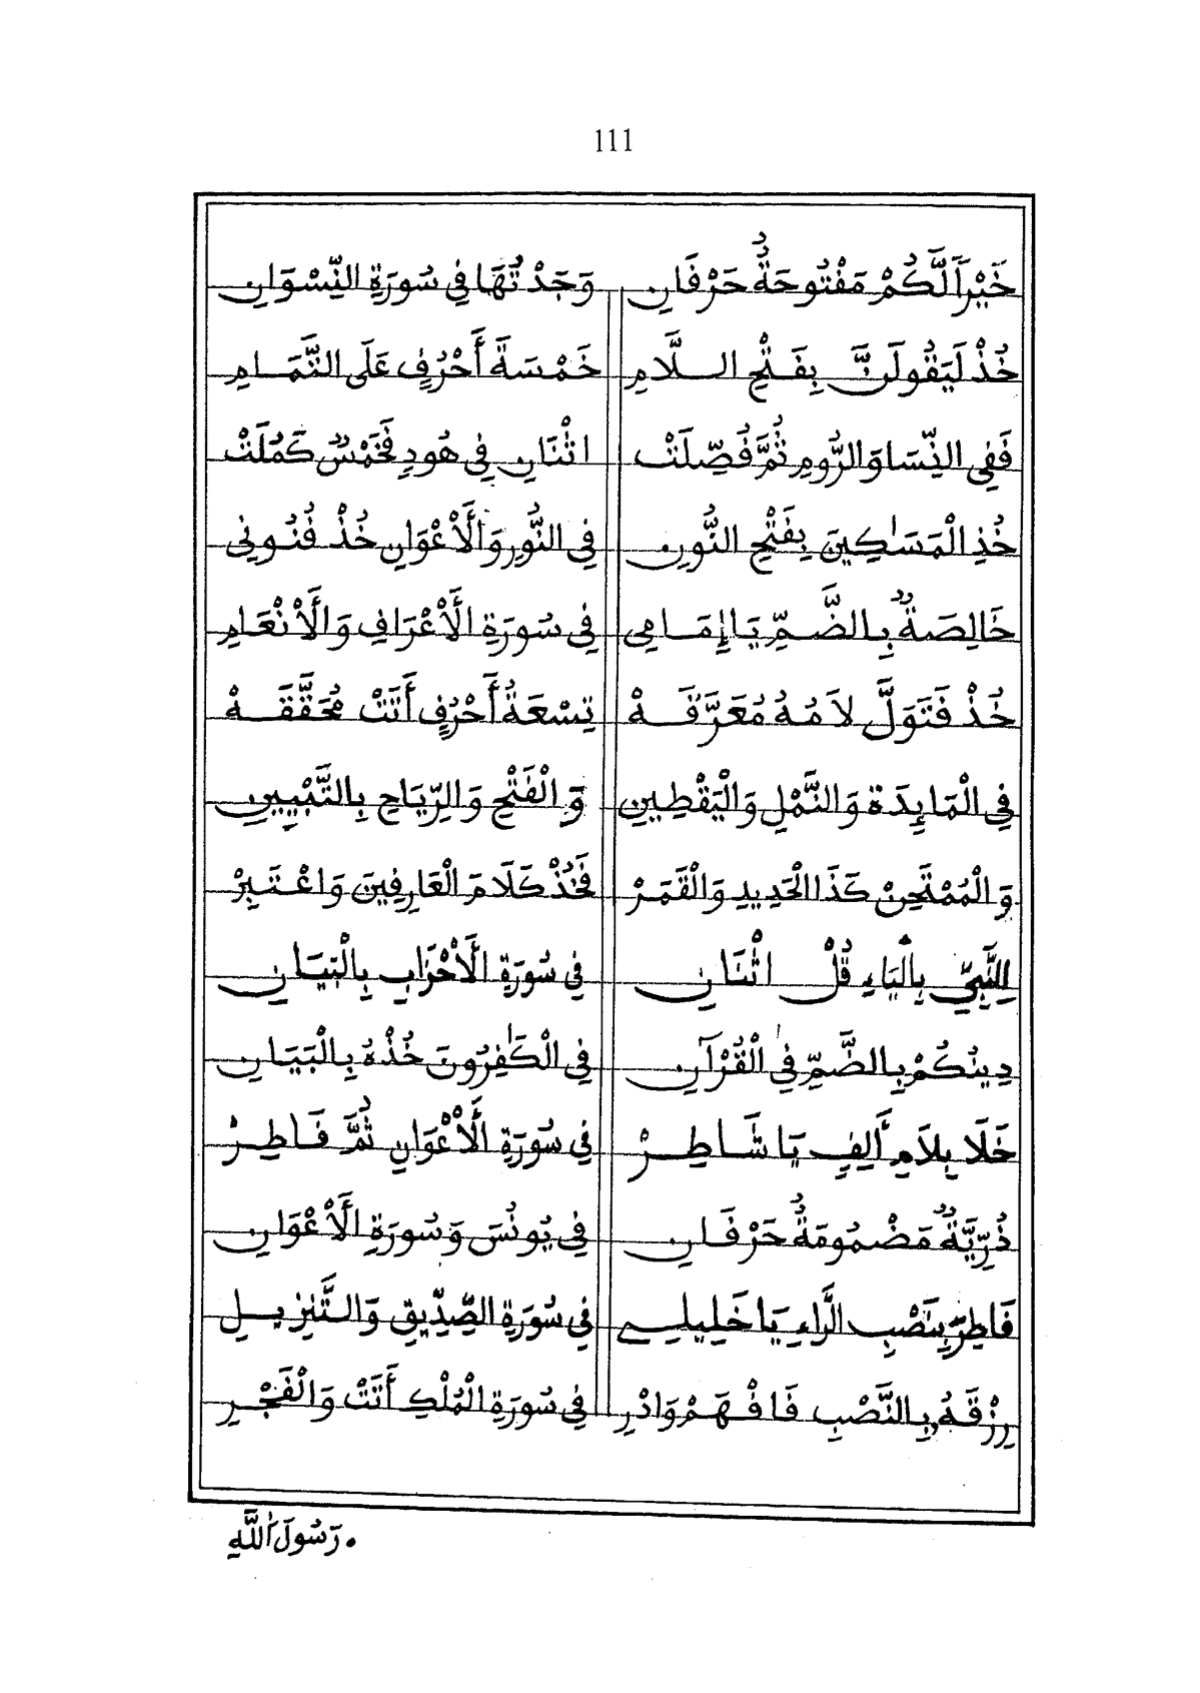 111
خَيْرًا لَّكُمْ مَفْتُوحَةٌ حَرْفَانِ وَجَدْتُهَا فِي سُورَةِ النِّسْوَانِ
خُذْ لَيَقُولَنَّ بِفَتْحِ السلَّامِ خَمْسَةَ أَحْرُفٍ عَلَى التَّمَامِ
فَفِي النِّسَا وَالرُّومِ ثُمَّ فُصِّلَتْ اثْنَانِ فِي هُودٍ فَخَمْسٌ كَمُلَتْ
خُذِ الْمَسَٰكِينَ بِفَتْحِ النُّونِ فِي النُّورِ وَالْأَعْوَانِ خُذْ فُنُونِي
خَالِصَةٌ بِالضَّمِّ يَا إِمَامِي فِي سُورَةِ الْأَعْرَافِ وَالْأَنْعَامِ
خُذْ فَتَوَلَّ لَامُهُ مُعَرَّقَهْ تِسْعَةُ أَحْرُفٍ أَتَتْ مُحَقَّقَهْ
فِي الْمَايِدَةِ وَالنَّمْلِ وَالْيَقْطِينِ وَالْفَتْحِ وَالرِّيَاحِ بِالتَّبْيِينِ
وَالْمُمْتَحِنْ كَذَا الْحَدِيدِ وَالْقَمَرْ فَخُذْ كَلَامَ الْعَارِفِينَ وَاعْتَبِرْ
لِلنَّبِيِّ بِالْيَاءِ قُلْ اثْنَانِ فِي سُورَةِ الْأَحْزَابِ بِالْبَيَانِ
دِينُكُمْ بِالضَّمِّ فِي الْقُرْآنِ فِي الْكَٰفِرُونَ خُذْهُ بِالْبَيَانِ
خَلَا بِلَامِ أَلِفٍ يَا شَاطِرْ فِي سُورَةِ الْأَعْوَانِ ثُمَّ فَاطِرْ
ذُرِّيَّةٌ مَضْمُومَةٌ حَرْفَانِ فِي يُونُسَ وَسُورَةِ الْأَعْوَانِ
فَاطِرَ بِنَصْبِ الرَّاءِ يَا خَلِيلِي فِي سُورَةِ الصِّدِّيقِ وَالتَّنْزِيلِ
رِزْقَهُ بِالنَّصْبِ فَافْهَمْ وَادْرِ فِي سُورَةِ الْمُلْكِ أَتَتْ وَالْفَجْرِ
. رَسُولَ اللَّهِ